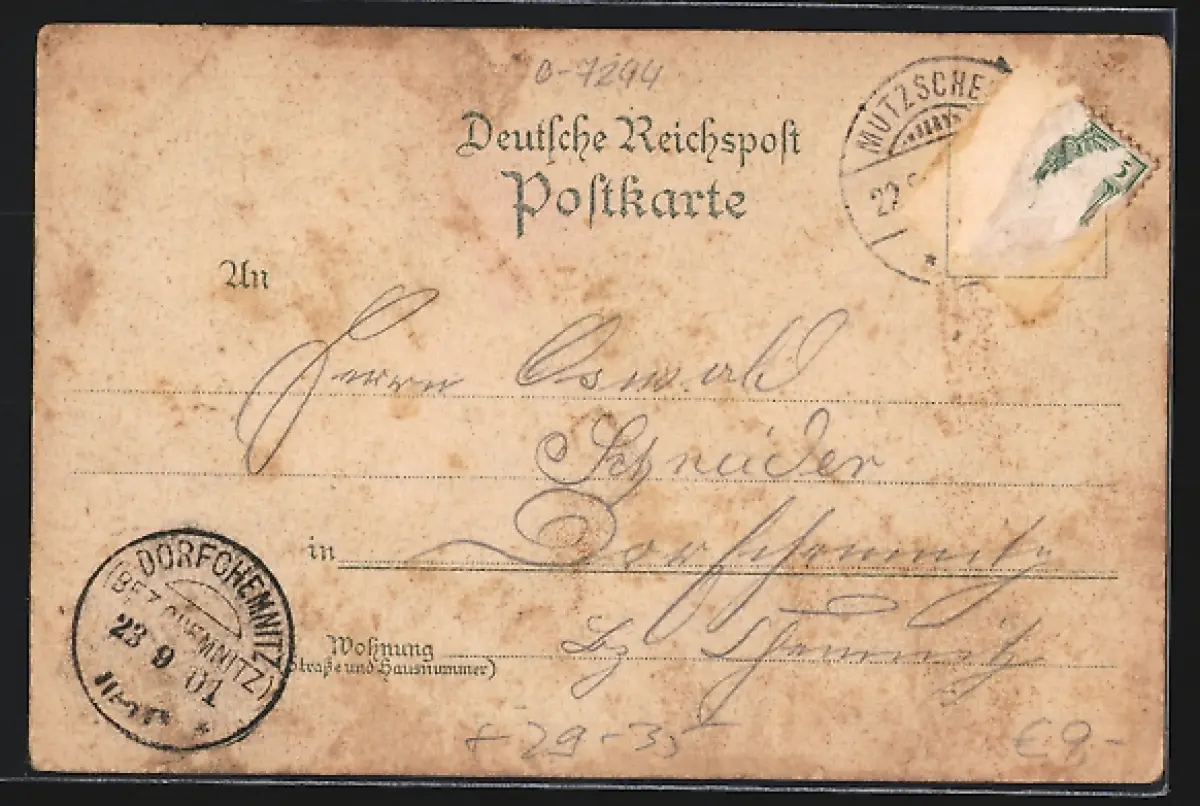 0-7294
Deutsche Reichspost
Postkarte
MUTZSCHE
22
5
An
Herrn Oswald
Schneider
in Dorfchemnitz
Wohnung
(Straße und Hausnummer)
Bz Chemnitz
DORFCHEMNITZ
(BEZ. CHEMNITZ)
23 9 01
29-35
€9,-